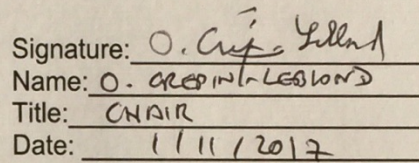 Signature: O. Crépin-Leblond
Name: O. CREPIN-LEBLOND
Title: CHAIR
Date: 1/11/2017